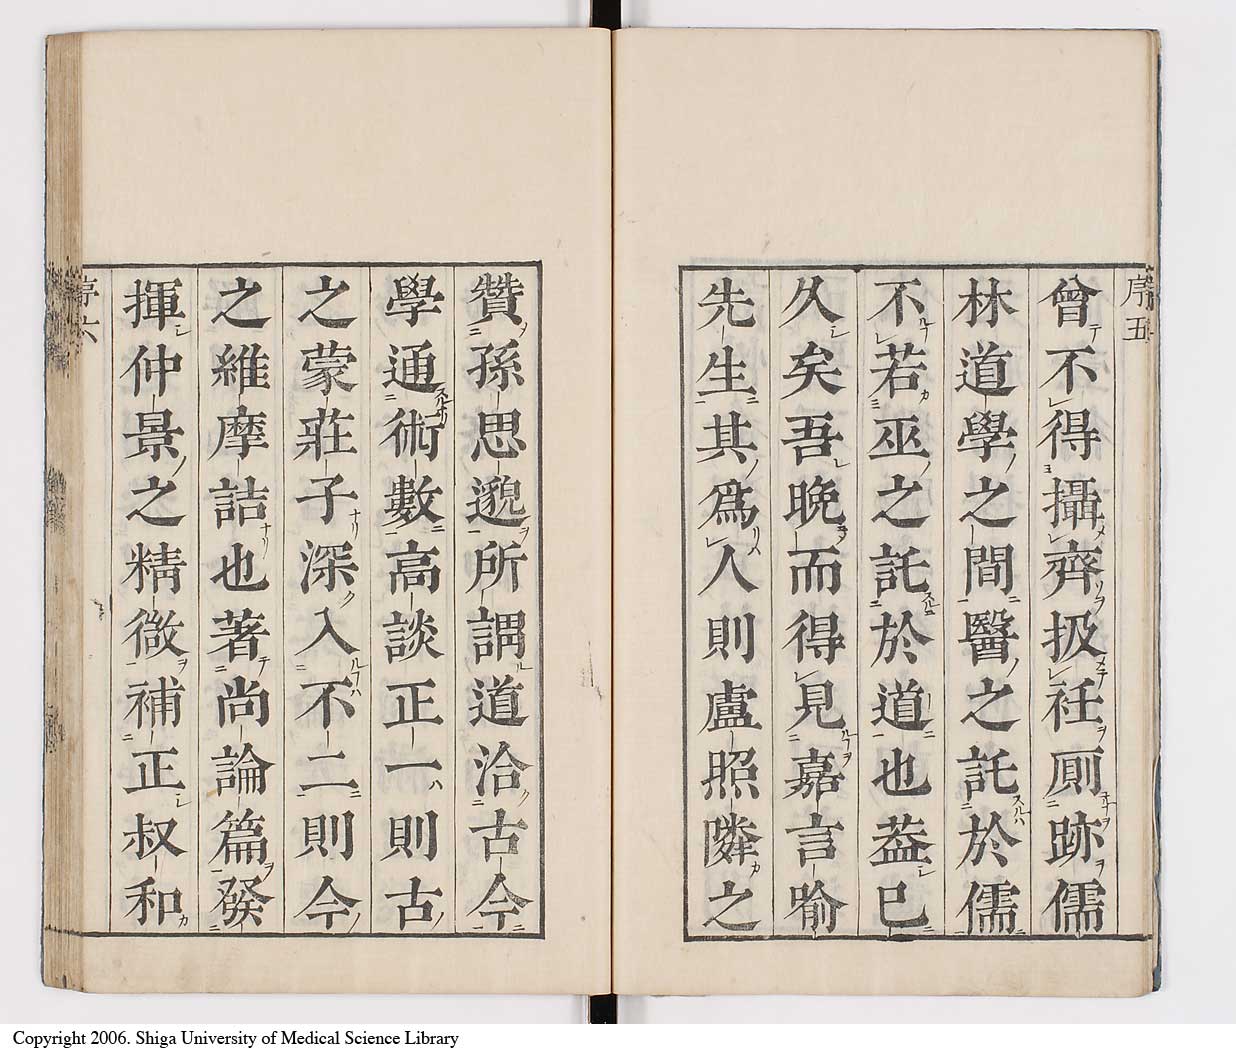 序五
曾不得攝齊扱衽厠跡儒
林道學之間醫之託於儒
不若巫之託於道也葢已
久矣吾晩而得見嘉言喻
先生其爲人則盧照隣之
贊孫思邈所謂道洽古今
學通術數高談正一則古
之蒙莊子深入不二則今
之維摩詰也著尚論篇發
揮仲景之精微補正叔和
序六
Copyright 2006. Shiga University of Medical Science Library